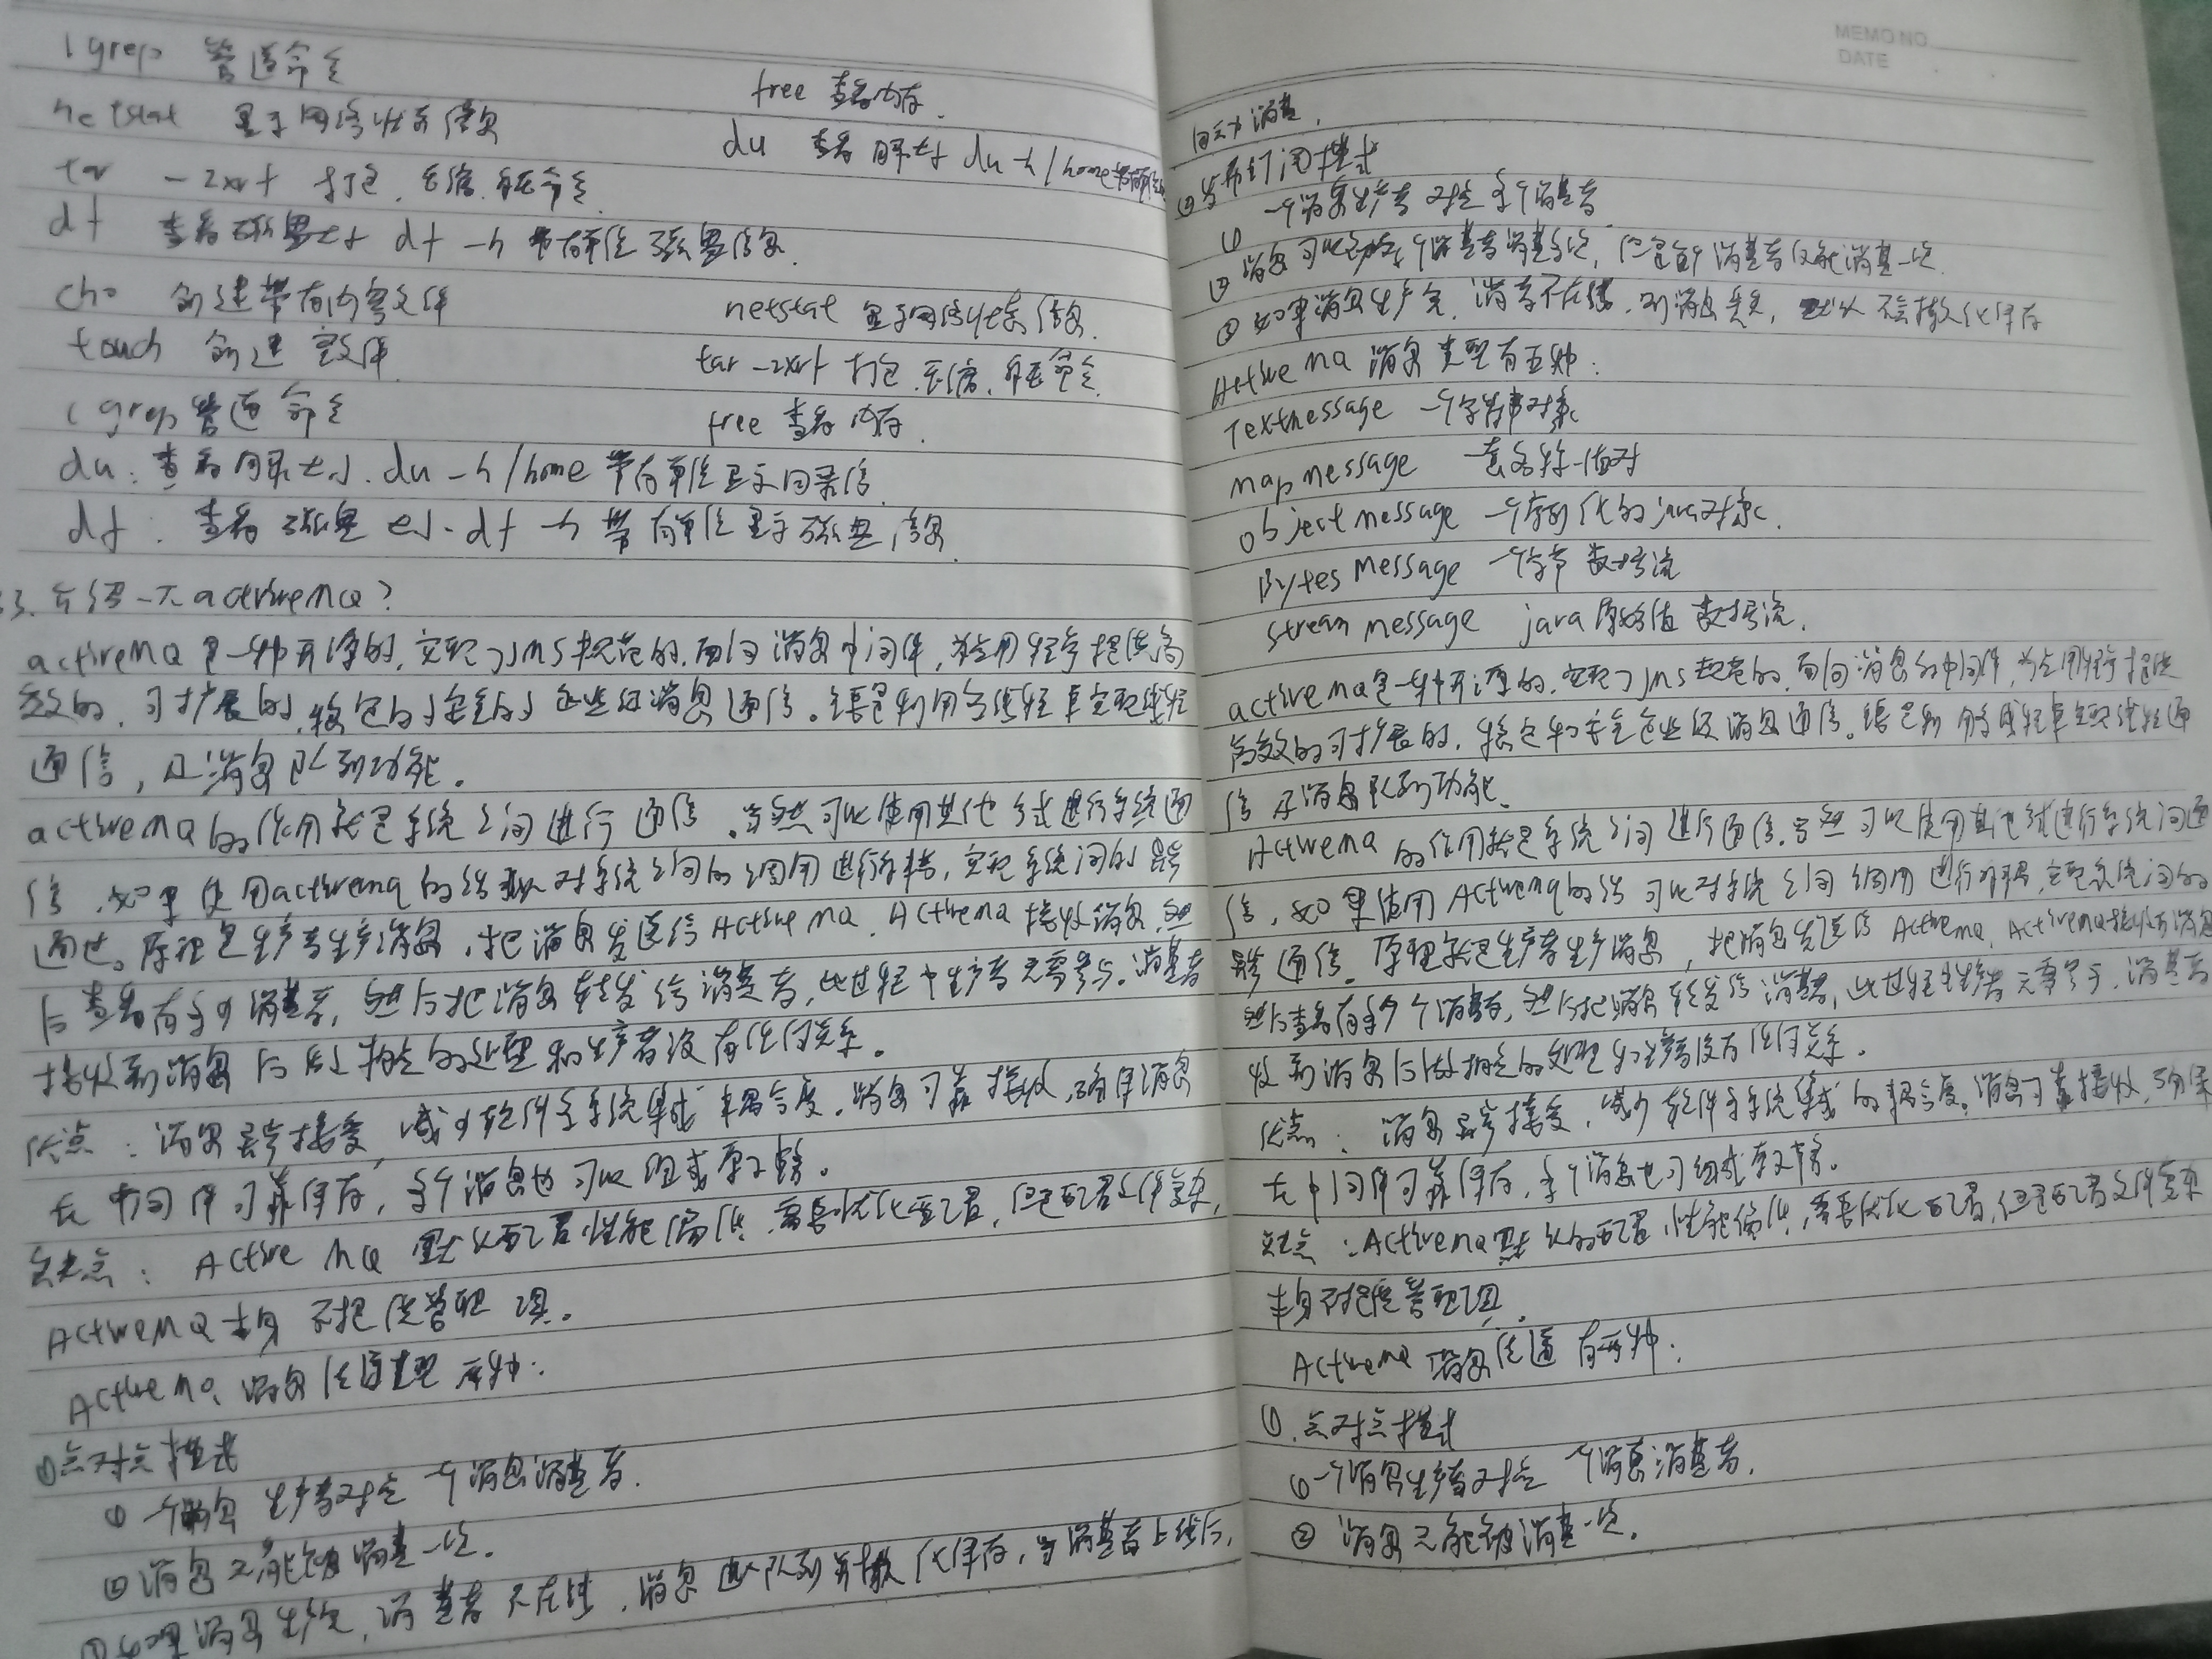 | grep 管道命令
netstat 显示网络状态信息
free 查看内存.
tar -zxvf 打包.压缩.解压命令.
du 查看目录大小 du -h /home 带有单位
df 查看磁盘大小 df -h 带有单位磁盘信息.
cho 创建带有内容文件
netstat 显示网络状态信息.
touch 创建空文件.
tar -zxvf 打包.压缩.解压命令.
| grep 管道命令
free 查看内存.
du: 查看目录大小. du -h /home 带有单位显示目录信.
df: 查看磁盘大小. df -h 带有单位显示磁盘信息.
3. 介绍一下activeMQ?
activeMQ是一种开源的,实现了JMS规范的,面向消息中间件,为应用程序提供高
效的、可扩展的、稳定的、安全的企业级消息通信。主要是利用多线程来实现线程
通信,及消息队列功能。
activeMQ的作用就是系统之间进行通信。当然可以使用其他方式进行系统通
信,如果使用activemq的话可以对系统之间的调用进行解耦,实现系统间的异步
通过。原理是生产者生产消息,把消息发送给ActiveMQ. ActiveMQ接收消息,然
后查看有多少消费者,然后把消息转发给消费者,此过程中生产者无需参与。消费者
接收到消息后做相应的处理和生产者没有任何关系。
优点:消息异步接受,减少软件多系统集成耦合度。消息可靠接收,确保消息
在中间件可靠保存,多个消息也可以组成原子事务。
缺点:ActiveMQ默认配置性能偏低,需要优化配置,但是配置文件复杂,
ActiveMQ本身不提供管理工具。
ActiveMQ消息传递类型两种:
①点对点模式
① 一个消息生产者对应一个消息消费者.
② 消息只能被消费一次.
③ 如果消息生产完,消费者不在线,消息进入队列并持久化保存,当消费者上线后,
自动消费.
②发布订阅模式
① 一个消息生产者对应多个消费者
② 消息可以被多个消费者消费多次,但是每个消费者仅能消费一次.
③ 如果消息生产完,消费者不在线,则消息丢失,默认不会持久化保存
ActiveMQ 消息类型有五种:
Textmessage 一个字符串对象
mapmessage 一套名称-值对
object message 一个序列化的java对象.
Bytes message 一个字节数据流
stream message java原始值数据流.
activeMQ是一种开源的,实现了JMS规范的,面向消息的中间件,为应用程序提供
高效的可扩展的,稳定和安全企业级消息通信。主要是利用多线程来实现线程通
信及消息队列功能.
ActiveMQ的作用就是系统之间进行通信.当然可以使用其他方式进行系统间通
信,如果使用ActiveMQ的话可以对系统之间调用进行解耦,实现系统间的
异步通信。原理就是生产者生产消息,把消息发送给ActiveMQ, ActiveMQ接收到消息
然后查看有多少个消费者,然后把消息转发给消费者,此过程中生产者无需参于,消费者
收到消息后做相应的处理和生产者没有任何关系.
优点:消息异步接受,减少软件多系统集成的耦合度。消息可靠接收,确保
在中间件可靠保存,多个消息也可组成事务.
缺点:ActiveMQ默认的配置性能偏低,需要优化配置,但是配置文件复杂
本身不提供管理工具.
ActiveMQ消息传递有两种:
①.点对点模式
① 一个消息生产者对应一个消息消费者.
② 消息只能被消费一次.